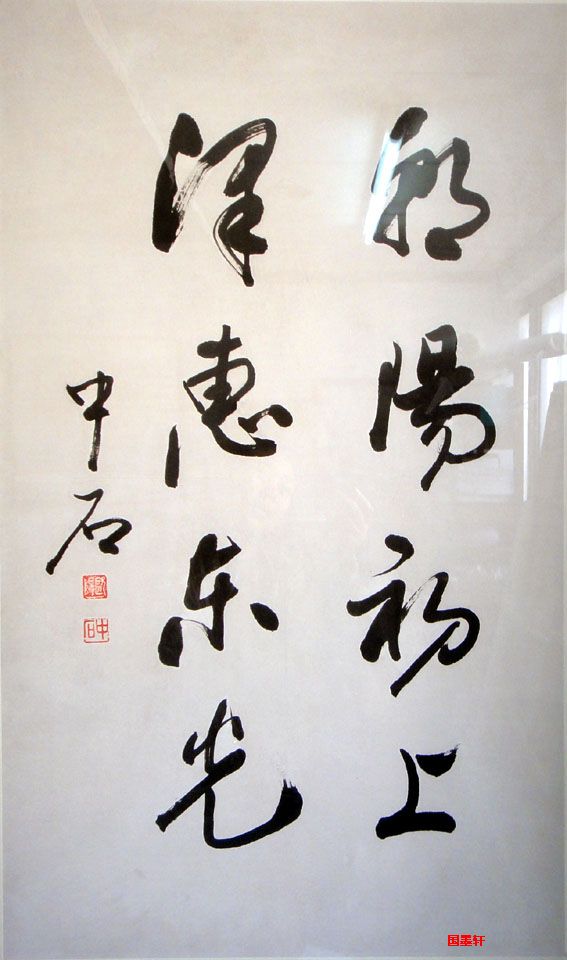 朝陽初上
泽惠东光
中石
中石
国墨轩